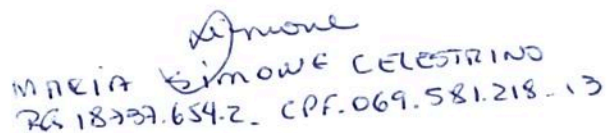 Simone
MARIA SIMONE CELESTRINO
RG 18737.654.2_ CPF.069.581.218-13